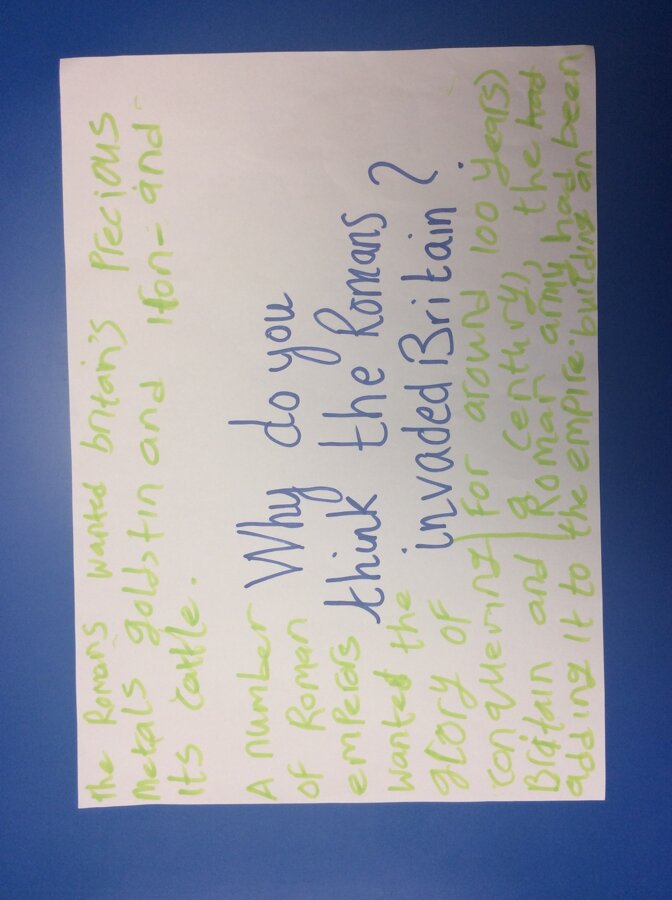 the Romans wanted britain's Precious
metals gold,tin and iron - and -
its cattle.
Why do you
think the Romans
invaded Britain?
A number
of Roman
emperors
wanted the
glory of
conquering
Britain and
adding it to the empire.
for around 100 years)
century), the had
Roman army had
building an been